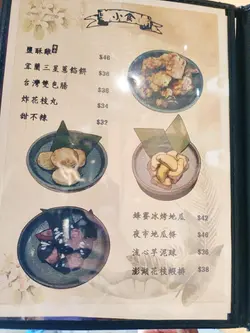 小食
鹽酥雞 $46
宜蘭三星蔥餡餅 $38
台灣雙色腸 $38
炸花枝丸 $34
甜不辣 $32
蜂蜜冰烤地瓜 $42
夜市地瓜餅 $36
流心芋泥球 $36
澎湖花枝蝦排 $38